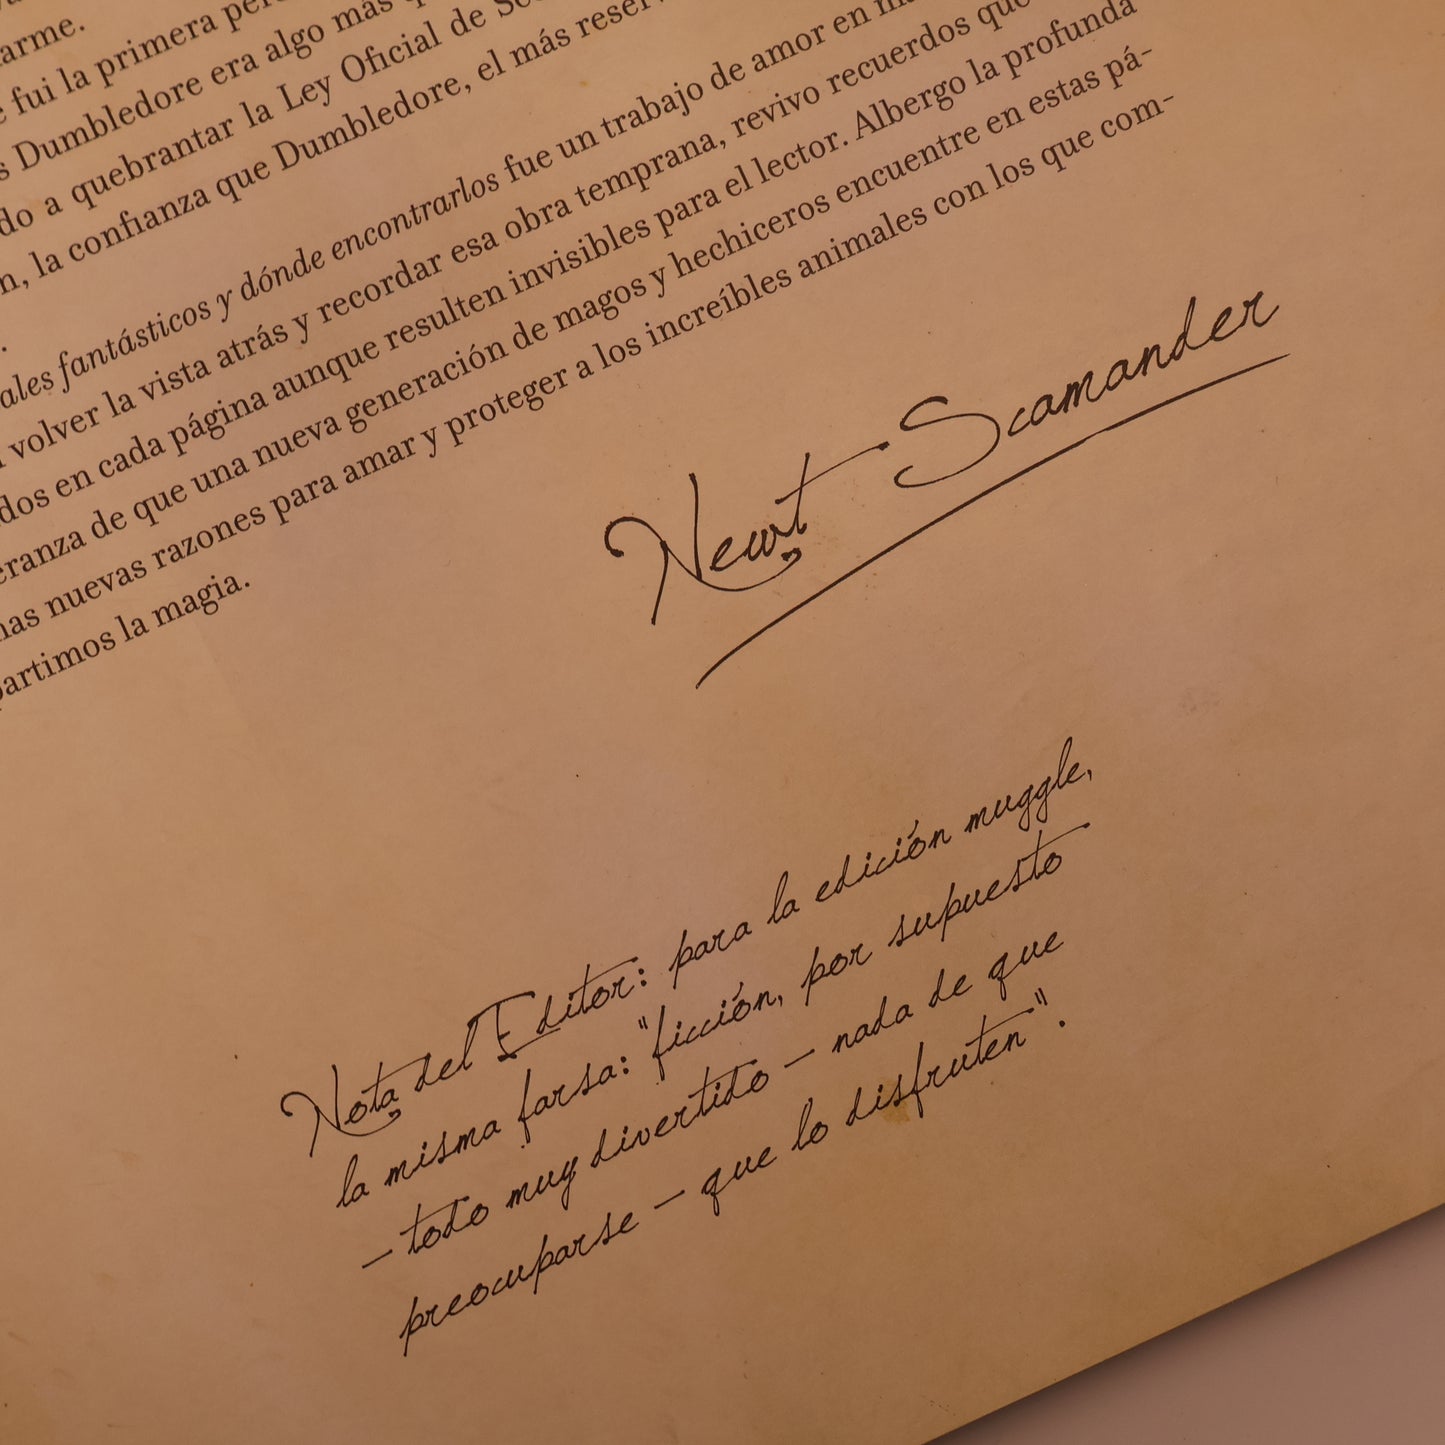 arme.
fui la primera per
Dumbledore era algo más q
do a quebrantar la Ley Oficial de Se
n, la confianza que Dumbledore, el más reser
ales fantásticos y dónde encontrarlos fue un trabajo de amor en m
volver la vista atrás y recordar esa obra temprana, revivo recuerdos que
dos en cada página aunque resulten invisibles para el lector. Albergo la profunda
eranza de que una nueva generación de magos y hechiceros encuentre en estas pá-
nas nuevas razones para amar y proteger a los increíbles animales con los que com-
partimos la magia.
Newt Scamander
Nota del Editor: para la edición muggle,
la misma farsa: "ficción, por supuesto
– todo muy divertido – nada de que
preocuparse – que lo disfruten".